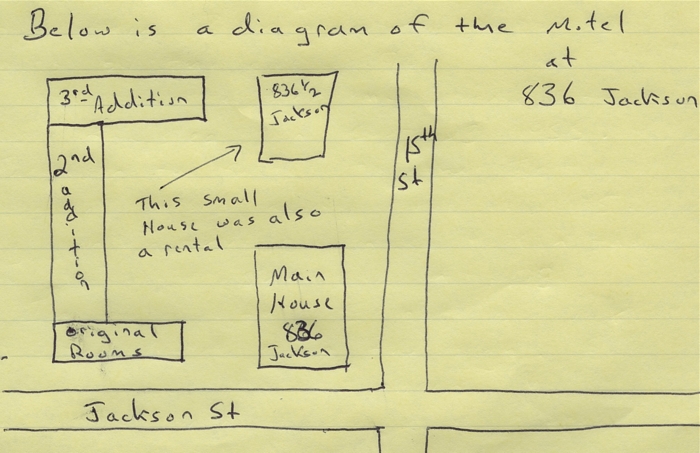 Below is a diagram of the Motel
at
836 Jackson
3rd Addition
836 1/2
Jackson
15th
St
2nd
addition
This small
House was also
a rental
Main
House
836
Jackson
original
Rooms
Jackson St